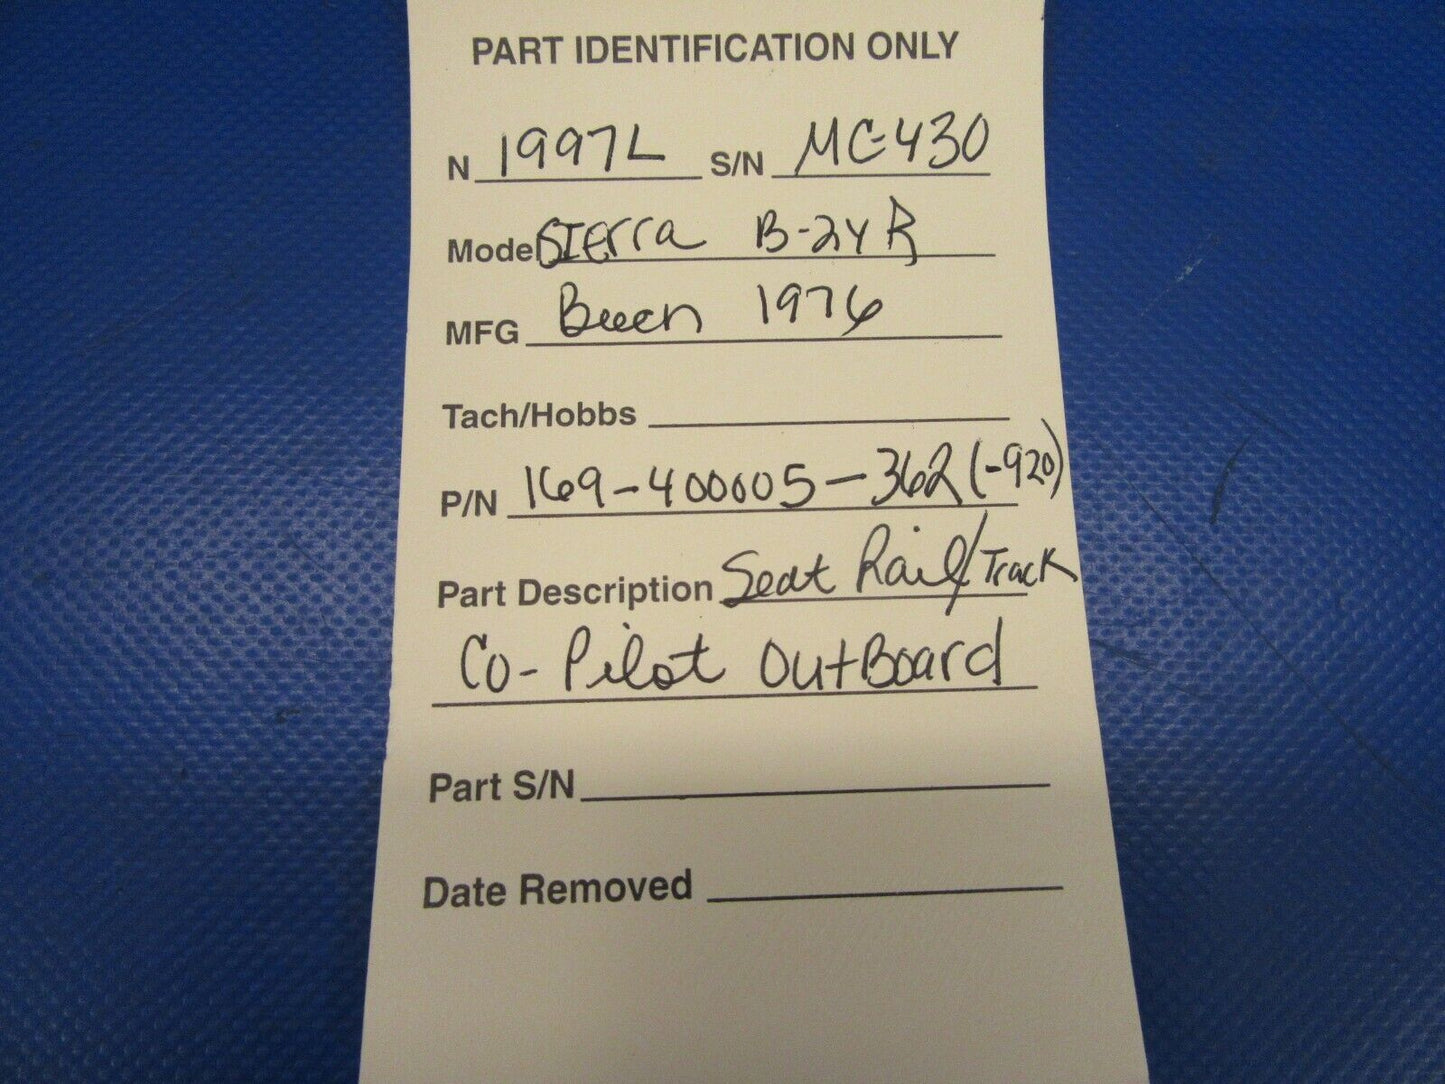 PART IDENTIFICATION ONLY
N 1997L S/N MC-430
Model Sierra B-24R
MFG Beech 1976
Tach/Hobbs
P/N 169-400005-362 (-920)
Part Description Seat Rail/Track
Co-Pilot OutBoard
Part S/N
Date Removed